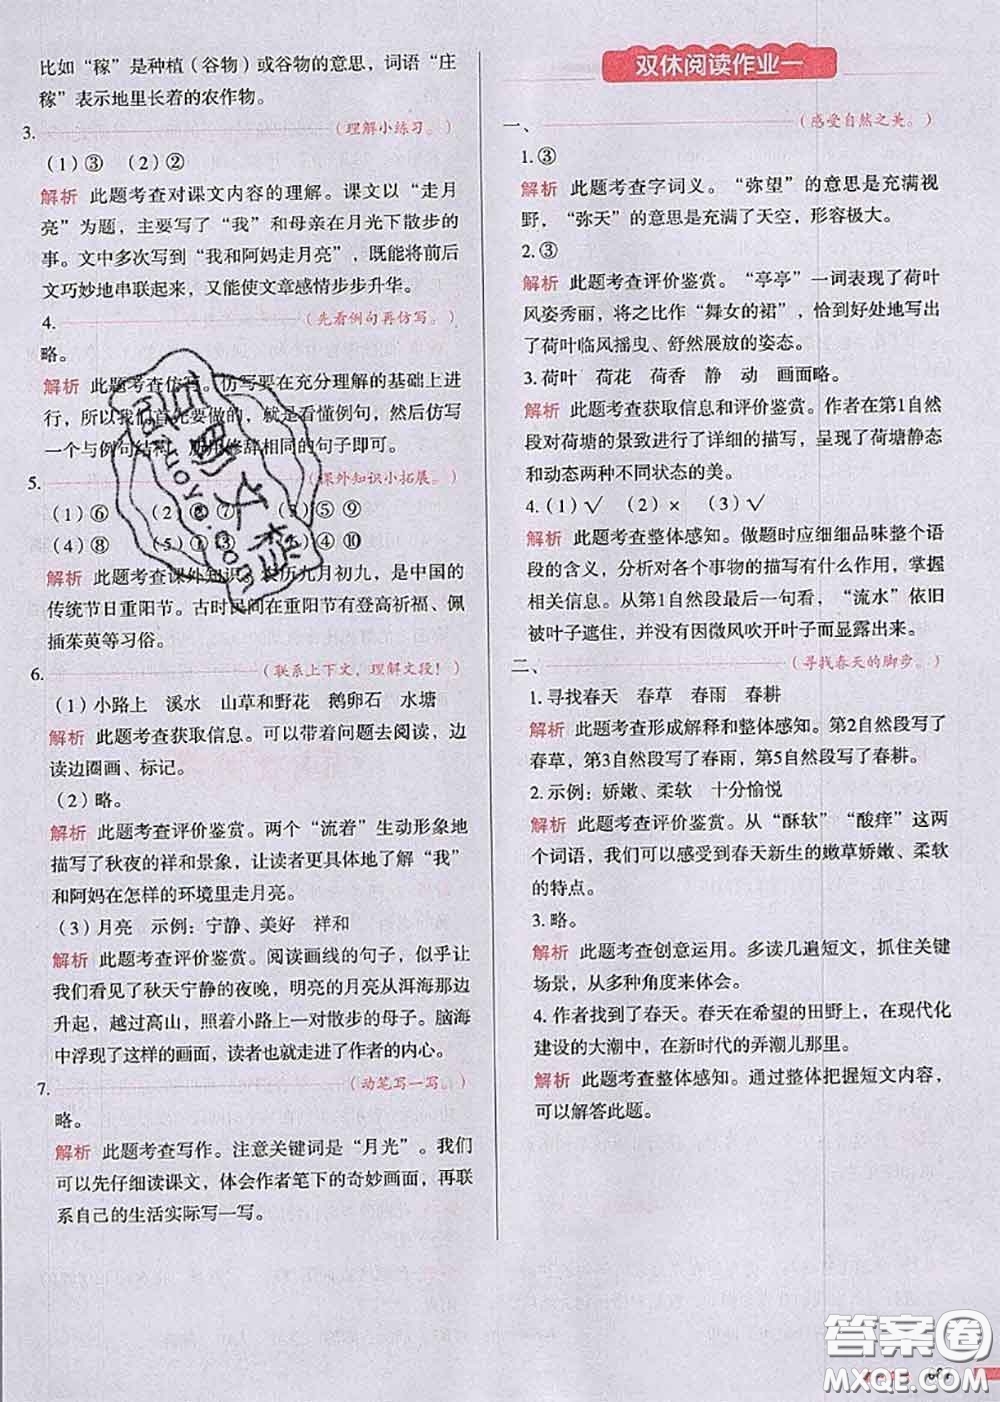 比如“稼”是种植（谷物）或谷物的意思，词语“庄
稼”表示地里长着的农作物。
3.（理解小练习。）
（1）③ （2）②
解析 此题考查对课文内容的理解。课文以“走月
亮”为题，主要写了“我”和母亲在月光下散步的
事。文中多次写到“我和阿妈走月亮”，既能将行
文巧妙地串联起来，又能使文章感情步步升华。
4.（先看例句再仿写。）
略。
解析 此题考查仿写。仿写要在充分理解的基础上进
行，所以我们首先要做的，就是看懂例句，然后仿写
一个与例句结构、所用修辞相同的句子即可。
5.（课外知识小拓展。）
（1）⑥ （2）②⑦ （3）⑤⑨
（4）⑧ （5）①③ ④⑩
解析 此题考查课外知识。农历九月初九，是中国的
传统节日重阳节。古时民间在重阳节有登高祈福、佩
插茱萸等习俗。
6.（联系上下文，理解文段！）
（1）小路上 溪水 山草和野花 鹅卵石 水塘
解析 此题考查获取信息。可以带着问题去阅读，边
读边圈画、标记。
（2）略。
解析 此题考查评价鉴赏。两个“流着”生动形象地
描写了秋夜的祥和景象，让读者更具体地了解“我”
和阿妈在怎样的环境里走月亮。
（3）月亮 示例：宁静、美好 祥和
解析 此题考查评价鉴赏。阅读画线的句子，似乎让
我们看见了秋天宁静的夜晚，明亮的月亮从洱海那边
升起，越过高山，照着小路上一对散步的母子。脑海
中浮现了这样的画面，读者也就走进了作者的内心。
7.（动笔写一写。）
略。
解析 此题考查写作。注意关键词是“月光”。我们
可以先仔细读课文，体会作者笔下的奇妙画面，再联
系自己的生活实际写一写。
双休阅读作业一
一、（感受自然之美。）
1.③
解析 此题考查字词义。“弥望”的意思是充满视
野，“弥天”的意思是充满了天空，形容极大。
2.③
解析 此题考查评价鉴赏。“亭亭”一词表现了荷叶
风姿秀丽，将之比作“舞女的裙”，恰到好处地写出
了荷叶临风摇曳、舒然展放的姿态。
3. 荷叶 荷花 荷香 静 动 画面略。
解析 此题考查获取信息和评价鉴赏。作者在第1自然
段对荷塘的景致进行了详细的描写，呈现了荷塘静态
和动态两种不同状态的美。
4.（1）√ （2）× （3）√
解析 此题考查整体感知。做题时应细细品味整个语
段的含义，分析对各个事物的描写有什么作用，掌握
相关信息。从第1自然段最后一句看，“流水”依旧
被叶子遮住，并没有因微风吹开叶子而显露出来。
二、（寻找春天的脚步。）
1. 寻找春天 春草 春雨 春耕
解析 此题考查形成解释和整体感知。第2自然段写了
春草，第3自然段写了春雨，第5自然段写了春耕。
2. 示例：娇嫩、柔软 十分愉悦
解析 此题考查评价鉴赏。从“酥软”“酸痒”这两
个词语，我们可以感受到春天新生的嫩草娇嫩、柔软
的特点。
3. 略。
解析 此题考查创意运用。多读几遍短文，抓住关键
场景，从多种角度来体会。
4. 作者找到了春天。春天在希望的田野上，在现代化
建设的大潮中，在新时代的弄潮儿那里。
解析 此题考查整体感知。通过整体把握短文内容，
可以解答此题。
答案圈
MXQE.COM